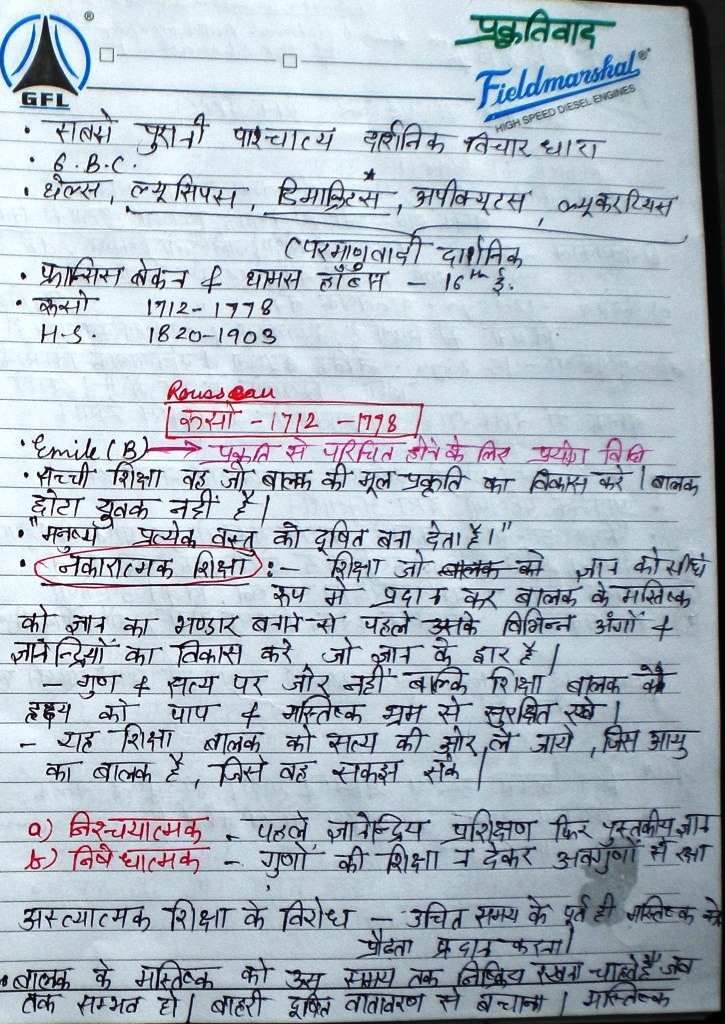 प्रकृतिवाद
®
GFL
Fieldmarshal®
HIGH SPEED DIESEL ENGINES
• सबसे पुरानी पाश्चात्य दार्शनिक विचार धारा
• 6. B.C.
• थेल्स, ल्यूसिपस, डिमाक्रिटस, अपीक्यूटस, ल्यूकरटियस
(परमाणुवादी दार्शनिक
• फ्रान्सिस बेकन & थामस हॉब्स - 16th ई.
• रूसो 1712-1778
H.S. 1820-1903
Rousseau
रूसो - 1712 - 1778
• Emile (B) → प्रकृति से परिचित होने के लिए प्रयोग विधि
• सच्ची शिक्षा वह जो बालक की मूल प्रकृति का विकास करे। बालक
छोटा युवक नहीं है।
• "मनुष्य प्रत्येक वस्तु को दूषित बना देता है।"
• नकारात्मक शिक्षा :- शिक्षा जो बालक को ज्ञान को सीधे
रूप में प्रदान कर बालक के मस्तिष्क
को ज्ञान का भण्डार बनाने से पहले उसके विभिन्न अंगों &
ज्ञानेन्द्रियों का विकास करे जो ज्ञान के द्वार है।
- गुण & सत्य पर जोर नहीं बल्कि शिक्षा बालक के
हृदय को पाप & मस्तिष्क भ्रम से सुरक्षित रखे।
- यह शिक्षा बालक को सत्य की ओर ले जाये, जिस आयु
का बालक है, जिसे वह समझ सके।
a) निश्चयात्मक - पहले ज्ञानेन्द्रिय प्रशिक्षण फिर पुस्तकीय ज्ञान
b) निषेधात्मक - गुणों की शिक्षा न देकर अवगुणों से रक्षा
अस्त्यात्मक शिक्षा के विरोध - उचित समय के पूर्व ही मस्तिष्क को
प्रौढता प्रदान करना।
• बालक के मस्तिष्क को उस समय तक निष्क्रिय रखना चाहते हैं जब
तक सम्भव हो। बाहरी दूषित वातावरण से बचाना। मस्तिष्क